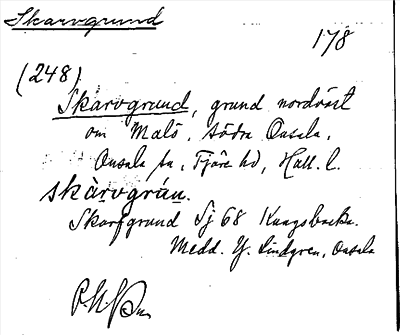 Skarvgrund
178
(248)
Skarvgrund, grund nordväst
om Malö, södra Onsala,
Onsala sn, Fjäre hd, Hall. l.
skàrvgrún.
Skarfgrund Sj 68 Kungsbacka.
Medd. Y. Lindgren, Onsala